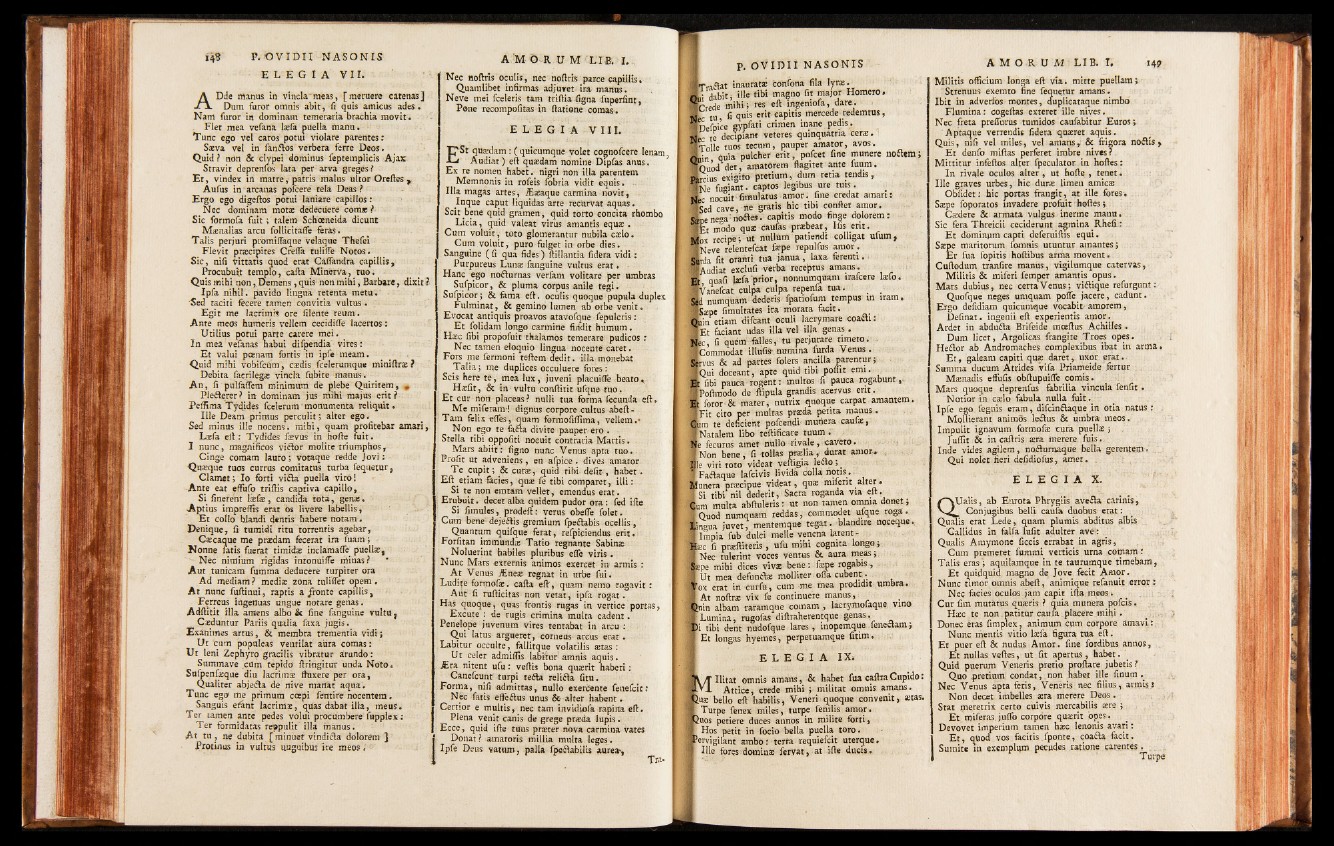 148 P. OVIDII NASONIS
ELEGIA VII.
ADde manus in vincla meas, [meruere catenas]
Dum furor omnis abit, ſi quis amicus ades.
Nam furor in dominam temeraria brachia movit.
Flet mea veſana læſa puella manu.
Tunc ego vel caros potui violare parentes:
Sæva vel in ſanctos verbera ferre Deos.
Quid? non & clypei dominus ſeptemplicis Ajax
Stravit deprenſos lata per arva greges?
Et, vindex in matre, patris malus ultor Oreſtes,
Auſus in arcanas poſcere tela Deas?
Ergo ego digeſtos potui laniare capillos:
Nec dominam motæ dedecuere comæ?
Sic formoſa fuit: talem Schœneida dicunt
Mænalias arcu ſollicitaſſe feras.
Talis perjuri promiſſaque velaque Theſei
Flevit præcipites Creſſa tuliſſe Notos.
Sic, niſi vittatis quod erat Caſſandra capillis,
Procubuit templo, caſta Minerva, tuo.
Quis mihi non, Demens, quis non mihi, Barbare, dixit?
Ipſa nihil. pavido lingua retenta metu.
Sed taciti fecere tamen convitia vultus.
Egit me lacrimis ore ſilente reum.
Ante meos humeris vellem cecidiſſe lacertos:
Utilius potui parte carere mei.
In mea veſanas habui diſpendia vires:
Et valui pœnam fortis in ipſe meam.
Quid mihi vobiſcum, cædis ſcelerumque miniſtræ?
Debita ſacrilegæ vincla ſubite manus.
An, ſi pulſaſſem minimum de plebe Quiritem,
Plecterer? in dominam jus mihi majus erit?
Peſſima Tydides ſcelerum monumenta reliquit.
Ille Deam primus perculit: alter ego.
Sed minus ille nocens. mihi, quam profitebar amari,
Læſa eſt: Tydides ſævus in hoſte fuit.
I nunc, magnificos victor molire triumphos,
Cinge comam lauro; votaque redde Jovi:
Quæque tuos currus comitatus turba ſequetur,
Clamet; Io forti victa puella viro!
Ante eat effuſo triſtis captiva capillo,
Si ſinerent læſæ, candida tota, genæ.
Aptius impreſſis erat os livere labellis,
Et collo blandi dentis habere notam.
Denique, ſi tumidi ritu torrentis agebar,
Cæcaque me prædam fecerat ira ſuam;
Nonne ſatis fuerat timidæ inclamaſſe puellæ,
Nec nimium rigidas intonuiſſe minas?
Aut tunicam ſumma deducere turpiter ora
Ad mediam? mediæ zona tuliſſet opem.
At nunc ſuſtinui, raptis a fronte capillis,
Ferreus ingenuas ungue notare genas.
Adſtitit illa amens albo & ſine ſanguine vultu,
Cæduntur Pariis qualia ſaxa jugis.
Exanimes artus, & membra trementia vidi;
Ut cum populeas ventilat aura comas:
Ut leni Zephyro gracilis vibratur arundo:
Summave cum tepido ſtringitur unda Noto.
Suſpenſæque diu lacrimæ fluxere per ora,
Qualiter abjecta de nive manat aqua.
Tunc ego me primum cœpi ſentire nocentem.
Sanguis erant lacrimæ, quas dabat illa, meus.
Ter tamen ante pedes volui procumbere ſupplex:
Ter formidatas reppulit illa manus.
At tu, ne dubita [minuet vindicta dolorem]
Protinus in vultus unguibus ire meos.
AMORUM LIB. I.
Nec noſtris oculis, nec noſtris parce capillis.
Quamlibet infirmas adjuvet ira manus.
Neve mei ſceleris tam triſtia ſigna ſuperſint,
Pone recompoſitas in ſtatione comas.
ELEGIA VIII.
ESt quædam: (quicumque volet cognoſcere lenam,
Audiat) eſt quædam nomine Dipſas anus.
Ex re nomen habet. nigri non illa parentem
Memnonis in roſeis ſobria vidit equis.
Illa magas artes, Æææque carmina novit,
Inque caput liquidas arte recurvat aquas.
Scit bene quid gramen, quid torto concita rhombo
Licia, quid valeat virus amantis equæ.
Cum voluit, toto glomerantur nubila cælo.
Cum voluit, puro fulget in orbe dies.
Sanguine (ſi qua fides) ſtillantia ſidera vidi:
Purpureus Lunæ ſanguine vultus erat.
Hanc ego nocturnas verſam volitare per umbras
Suſpicor, & pluma corpus anile tegi.
Suſpicor; & fama eſt. oculis quoque pupula duplex
Fulminat, & gemino lumen ab orbe venit.
Evocat antiquis proavos atavoſque ſepulcris:
Et ſolidam longo carmine findit humum.
Hæc ſibi propoſuit thalamos temerare pudicos:
Nec tamen eloquio lingua nocente caret.
Fors me ſermoni teſtem dedit. illa monebat
Talia; me duplices occuluere fores:
Scis here te, mea lux, juveni placuiſſe beato.
Hæſit, & in vultu conſtitit uſque tuo.
Et cur non placeas? nulli tua forma ſecunda eſt.
Me miſeram! dignus corpore cultus abeſt.
Tam felix eſſes, quam formoſiſſima, vellem.
Non ego te facta divite pauper ero.
Stella tibi oppoſiti nocuit contraria Martis.
Mars abiit: ſigno nunc Venus apta tuo.
Proſit ut adveniens, en aſpice. dives amator
Te cupit; & curæ, quid tibi deſit, habet.
Eſt etiam facies, quæ ſe tibi comparet, illi:
Si te non emtam vellet, emendus erat.
Erubuit. decet alba quidem pudor ora: ſed iſte
Si ſimules, prodeſt: verus obeſſe ſolet.
Cum bene dejectis gremium ſpectabis ocellis,
Quantum quiſque ferat, reſpiciendus erit.
Forſitan immundæ Tatio regnante Sabinæ
Noluerint habiles pluribus eſſe viris.
Nunc Mars externis animos exercet in armis:
At Venus Æneæ regnat in urbe ſui.
Ludite formoſæ. caſta eſt, quam nemo rogavit:
Aut ſi ruſticitas non vetat, ipſa rogat.
Has quoque, quas frontis rugas in vertice portas,
Excute: de rugis crimina multa cadent.
Penelope juvenum vires tentabat in arcu:
Qui latus argueret, corneus arcus erat.
Labitur occulte, fallitque volatilis ætas:
Ut celer admiſſis labitur amnis aquis.
Æra nitent uſu: veſtis bona quærit haberi:
Caneſcunt turpi tecta relicta ſitu.
Forma, niſi admittas, nullo exercente ſeneſcit:
Nec ſatis effectus unus & alter habent.
Certior e multis, nec tam invidioſa rapina eſt.
Plena venit canis de grege præda lupis.
Ecce, quid iſte tuus præter nova carmina vates
Donat? amatoris millia multa leges.
Ipſe Deus vatum, palla ſpectabilis aurea,
Tra-
P. OVIDII NASONIS
Tractat inauratæ conſona fila lyræ.
Qui dabit, ille tibi magno ſit major Homero.
Crede mihi; res eſt ingenioſa, dare.
Nec tu, ſi quis erit capitis mercede redemtus,
Deſpice gypſati crimen inane pedis.
Nec te decipiant veteres quinquatria ceræ.
Tolle tuos tecum, pauper amator, avos.
Quin, quia pulcher erit, poſcet ſine munere noctem;
Quod det, amatorem flagitet ante ſuum.
Parcius exigito pretium, dum retia tendis,
Ne fugiant. captos legibus ure tuis.
Nec nocuit ſimulatus amor. ſine credat amari:
Sed cave, ne gratis hic tibi conſtet amor.
Sæpe nega noctes. capitis modo finge dolorem:
Et modo quæ cauſas præbeat, Iſis erit.
Mox recipe; ut nullum patiendi colligat uſum,
Neve relenteſcat ſæpe repulſus amor.
Surda ſit oranti tua janua, laxa ferenti.
Audiat excluſi verba receptus amans.
Et, quaſi læſa prior, nonnumquam iraſcere læſo.
Vaneſcat culpa culpa repenſa tua.
Sed numquam dederis ſpatioſum tempus in iram.
Sæpe ſimultates ira morata facit.
Quin etiam diſcant oculi lacrymare coacti:
Et faciant udas illa vel illa genas.
Nec, ſi quem falles, tu perjurare timeto.
Commodat illuſis numina ſurda Venus.
Servus & ad partes ſolers ancilla parentur;
Qui doceant, apte quid tibi poſſit emi.
Et ſibi pauca rogent: multos ſi pauca rogabunt,
Poſtmodo de ſtipula grandis acervus erit.
Et ſoror & mater, nutrix quoque carpat amantem.
Fit cito per multas præda petita manus.
Cum te deficient poſcendi munera cauſæ,
Natalem libo teſtificare tuum.
Ne ſecurus amet nullo rivale, caveto.
Non bene, ſi tollas prælia, durat amor.
Ille viri toto videat veſtigia lecto;
Factaque laſcivis livida colla notis.
Munera præcipue videat, quæ miſerit alter.
Si tibi nil dederit, Sacra roganda via eſt.
Cum multa abſtuleris: ut non tamen omnia donet;
Quod numquam reddas, commodet uſque roga.
Lingua juvet, mentemque tegat. blandire noceque.
Impia ſub dulci melle venena latent.
Hæc ſi præſtiteris, uſu mihi cognita longo;
Nec tulerint voces ventus & aura meas;
Sæpe mihi dices vivæ bene: ſæpe rogabis,
Ut mea defunctæ molliter oſſa cubent.
Vox erat in curſu, cum me mea prodidit umbra.
At noſtræ vix ſe continuere manus,
Quin albam raramque comam, lacrymoſaque vino
Lumina, rugoſas diſtraherentque genas.
Di tibi dent nudoſque lares, inopemque ſenectam;
Et longas hyemes, perpetuamque ſitim.
ELEGIA IX.
MIlitat omnis amans, & habet ſua caſtra Cupido:
Attice, crede mihi; militat omnis amans.
Quæ bello eſt habilis, Veneri quoque convenit, ætas.
Turpe ſenex miles, turpe ſenilis amor.
Quos petiere duces annos in milite forti,
Hos petit in ſocio bella puella toro.
Pervigilant ambo: terra requieſcit uterque.
Ille fores dominæ ſervat, at iſte ducis.
AMORUM LIB. I. 149
Militis officium longa eſt via. mitte puellam;
Strenuus exemto fine ſequetur amans.
Ibit in adverſos montes, duplicataque nimbo
Flumina: cogeſtas exteret ille nives.
Nec freta preſſurus tumidos cauſabitur Euros;
Aptaque verrendis ſidera quæret aquis.
Quis, niſi vel miles, vel amans, & frigora noctis,
Et denſo miſtas perferet imbre nives?
Mittitur infeſtos alter ſpeculator in hoſtes:
In rivale oculos alter, ut hoſte, tenet.
Ille graves urbes, hic duræ limen amicæ
Obſidet: hic portas frangit, at ille fores.
Sæpe ſoporatos invadere profuit hoſtes;
Cædere & armata vulgus inerme manu.
Sic fera Threicii ceciderunt agmina Rheſi:
Et dominum capti deſeruiſtis equi.
Sæpe maritorum ſomnis utuntur amantes;
Et ſua ſopitis hoſtibus arma movent.
Cuſtodum tranſire manus, vigilumque catervas,
Militis & miſeri ſemper amantis opus.
Mars dubius, nec certa Venus; victique reſurgunt:
Quoſque neges umquam poſſe jacere, cadunt.
Ergo deſidiam quicumque vocabit amorem,
Deſinat. ingenii eſt experientis amor.
Ardet in abducta Briſeide mœſtus Achilles.
Dum licet, Argolicas frangite Troes opes.
Hector ab Andromaches complexibus ibat in arma.
Et, galeam capiti quæ daret, uxor erat.
Summa ducum Atrides viſa Priameide fertur
Mænadis effuſis obſtupuiſſe comis.
Mars quoque deprenſus fabrilia vincula ſenſit.
Notior in cælo fabula nulla fuit.
Ipſe ego ſegnis eram, diſcinctaque in otia natus:
Mollierant animos lectus & umbra meos.
Impulit ignavum formoſæ cura puellæ;
Juſſit & in caſtris æra merere ſuis.
Inde vides agilem, nocturnaque bella gerentem.
Qui nolet fieri deſidioſus, amet.
ELEGIA X.
QUalis, ab Eurota Phrygiis avecta carinis,
Conjugibus belli cauſa duobus erat:
Qualis erat Lede, quam plumis abditus albis
Callidus in falſa luſit adulter ave:
Qualis Amymone ſiccis errabat in agris,
Cum premeret ſummi verticis urna comam:
Talis eras; aquilamque in te taurumque timebam,
Et quidquid magno de Jove fecit Amor.
Nunc timor omnis abeſt, animique reſanuit error:
Nec facies oculos jam capit iſta meos.
Cur ſim mutatus quæris? quia munera poſcis.
Hæc te non patitur cauſa placere mihi.
Donec eras ſimplex, animum cum corpore amavi:
Nunc mentis vitio læſa figura tua eſt.
Et puer eſt & nudus Amor. ſine ſordibus annos,
Et nullas veſtes, ut ſit apertus, habet.
Quid puerum Veneris pretio proſtare jubetis?
Quo pretium condat, non habet ille ſinum.
Nec Venus apta feris, Veneris nec filius, armis:
Non decet imbelles æra merere Deos.
Stat meretrix certo cuivis mercabilis ære;
Et miſeras juſſo corpore quærit opes.
Devovet imperium tamen hæc lenonis avari:
Et, quod vos facitis ſponte, coacta facit.
Sumite in exemplum pecudes ratione carentes.
Turpe